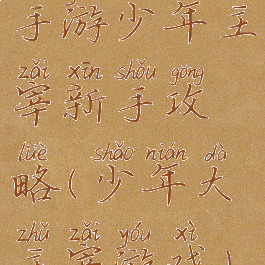 手游少年主
zǎi xīn shǒu gōng
宰新手攻
lüè shào nián dà
略(少年大
zhǔ zǎi yóu xì
主宰游戏)